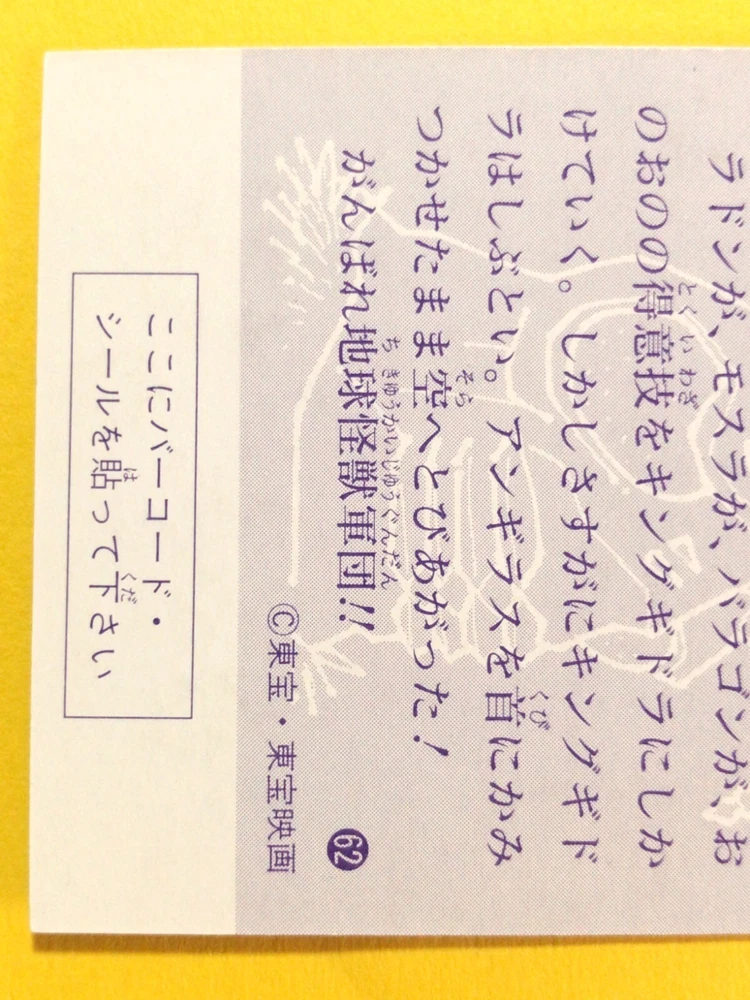 ラドンが、モスラが、バラゴンが、お
のおのの得意技をキングギドラにしか
けていく。しかしさすがにキングギド
ラはしぶとい。アンギラスを首にかみ
つかせたまま空へとびあがった!
がんばれ地球怪獣軍団!!
62
©東宝・東宝映画
ここにバーコード・
シールを貼って下さい